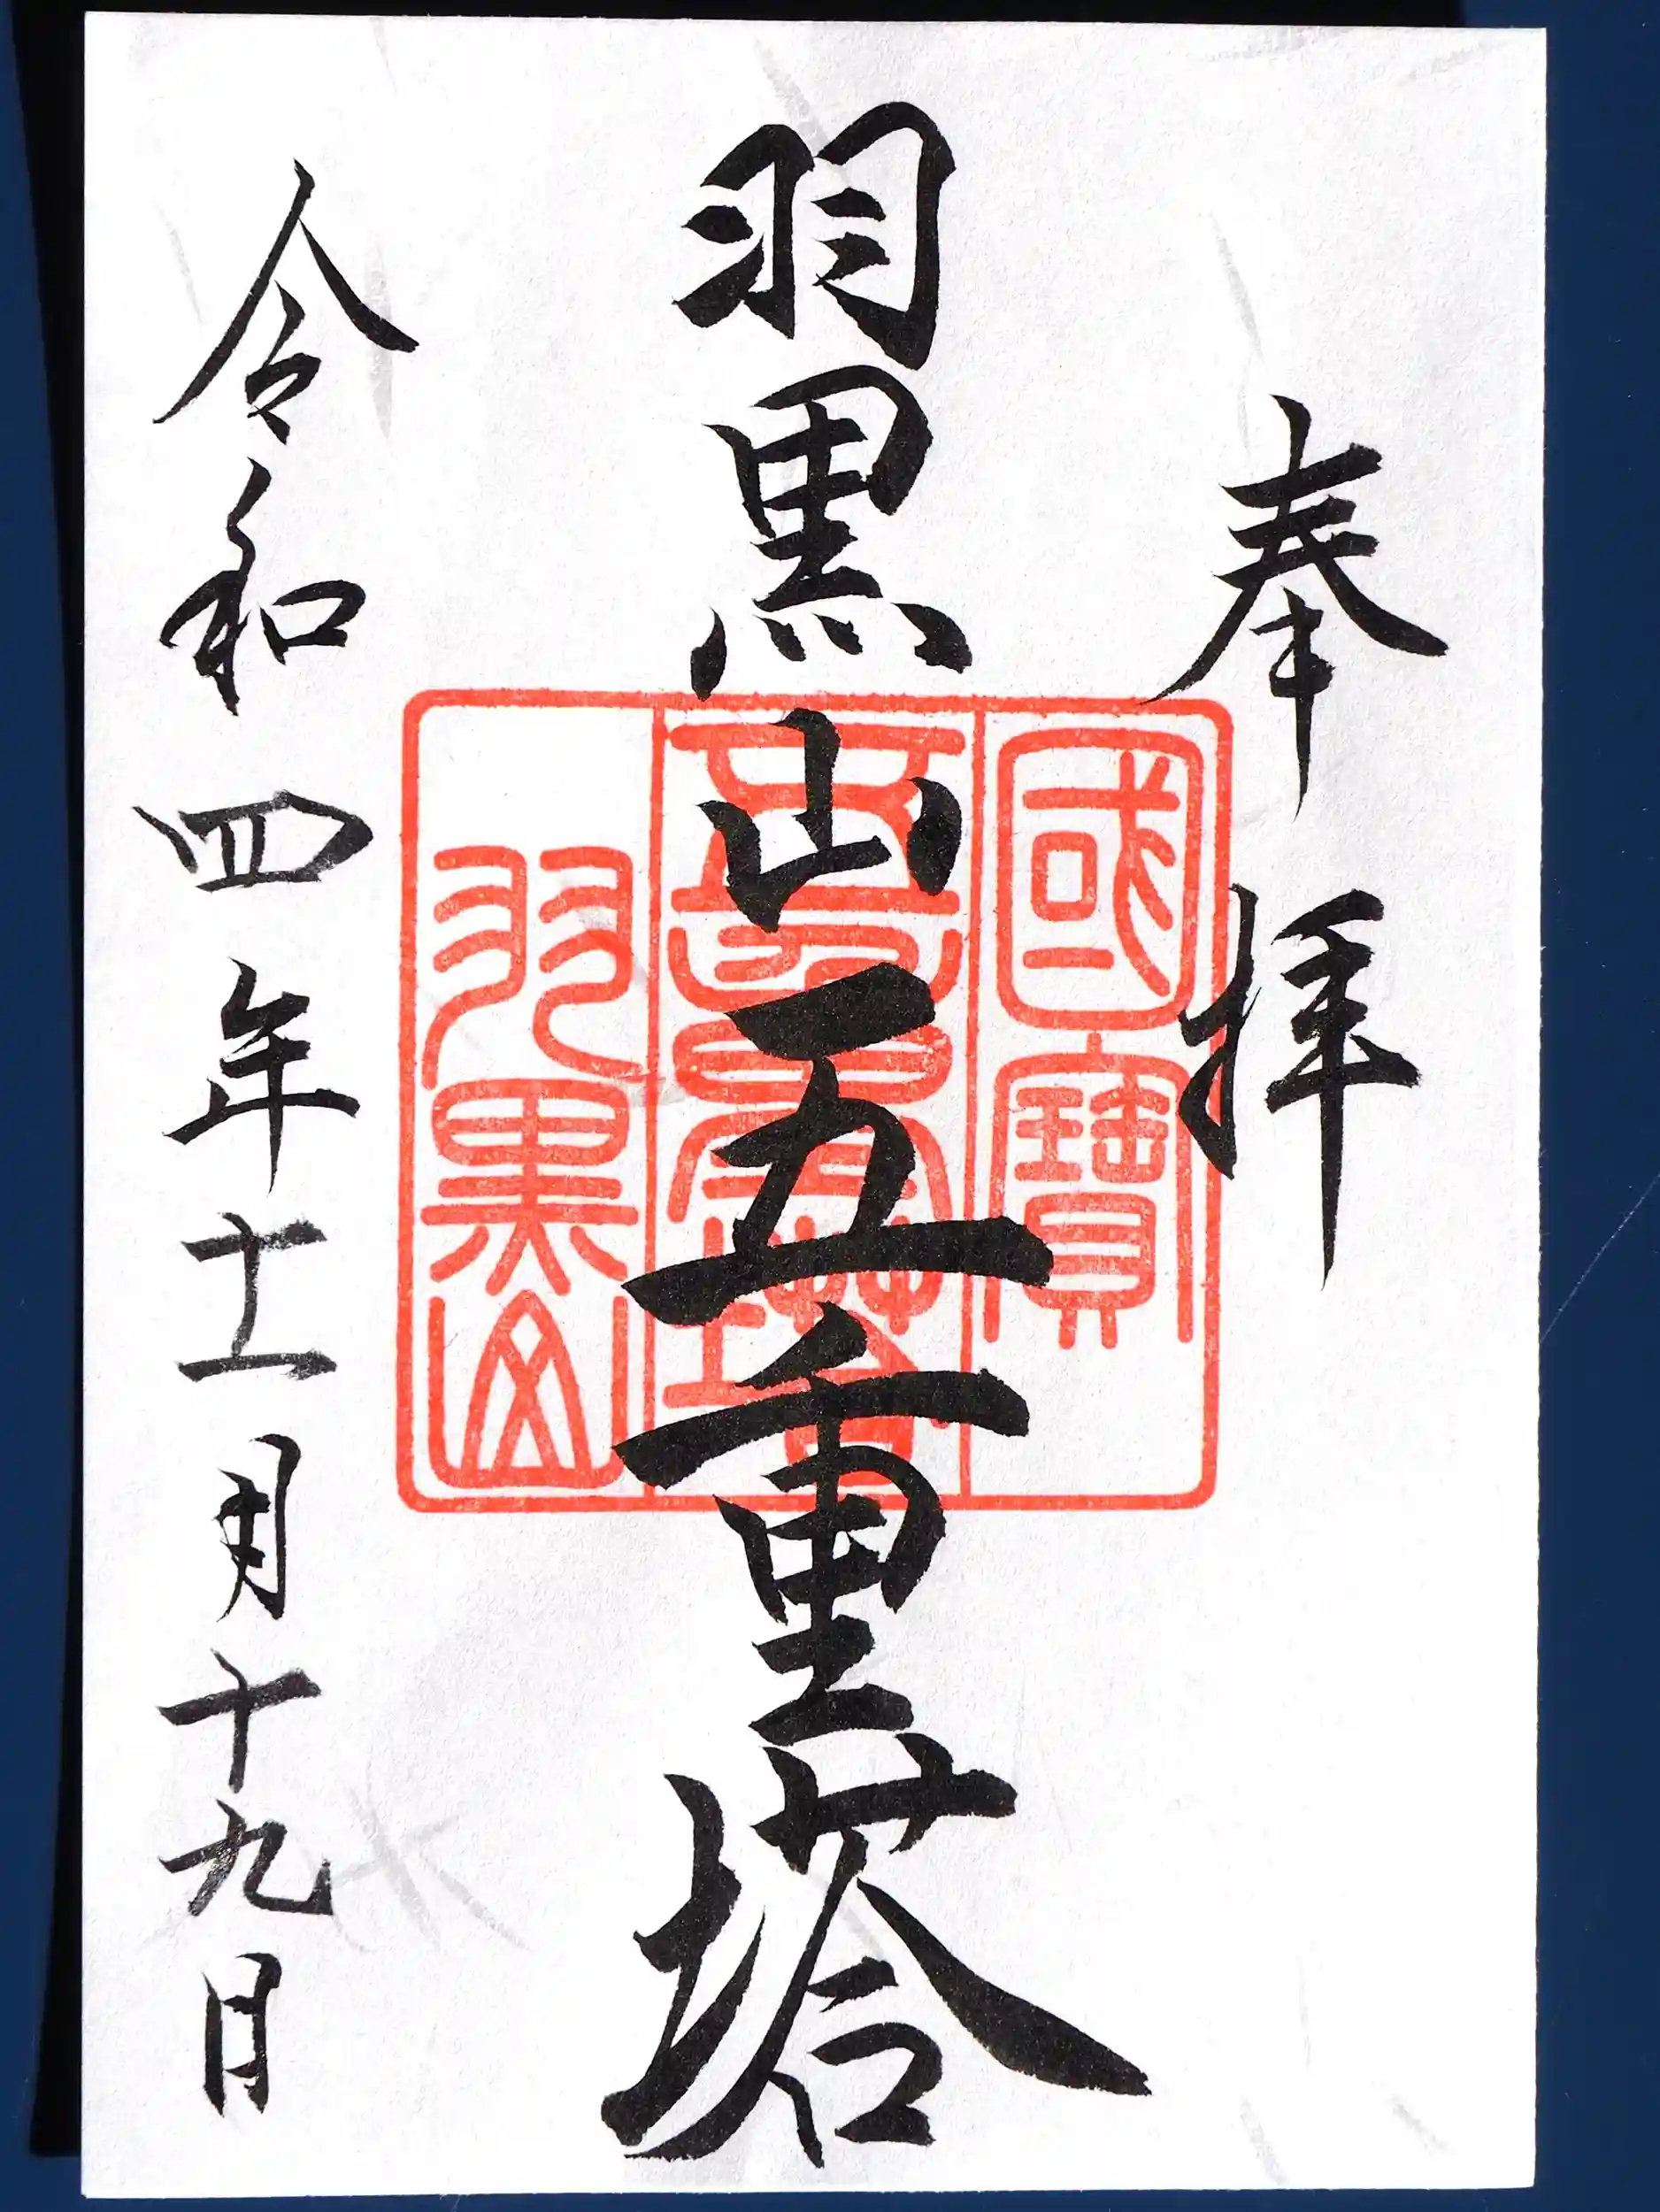 奉拝
羽黒山五重塔
令和四年十一月十九日
國寶
五重塔
羽黒山